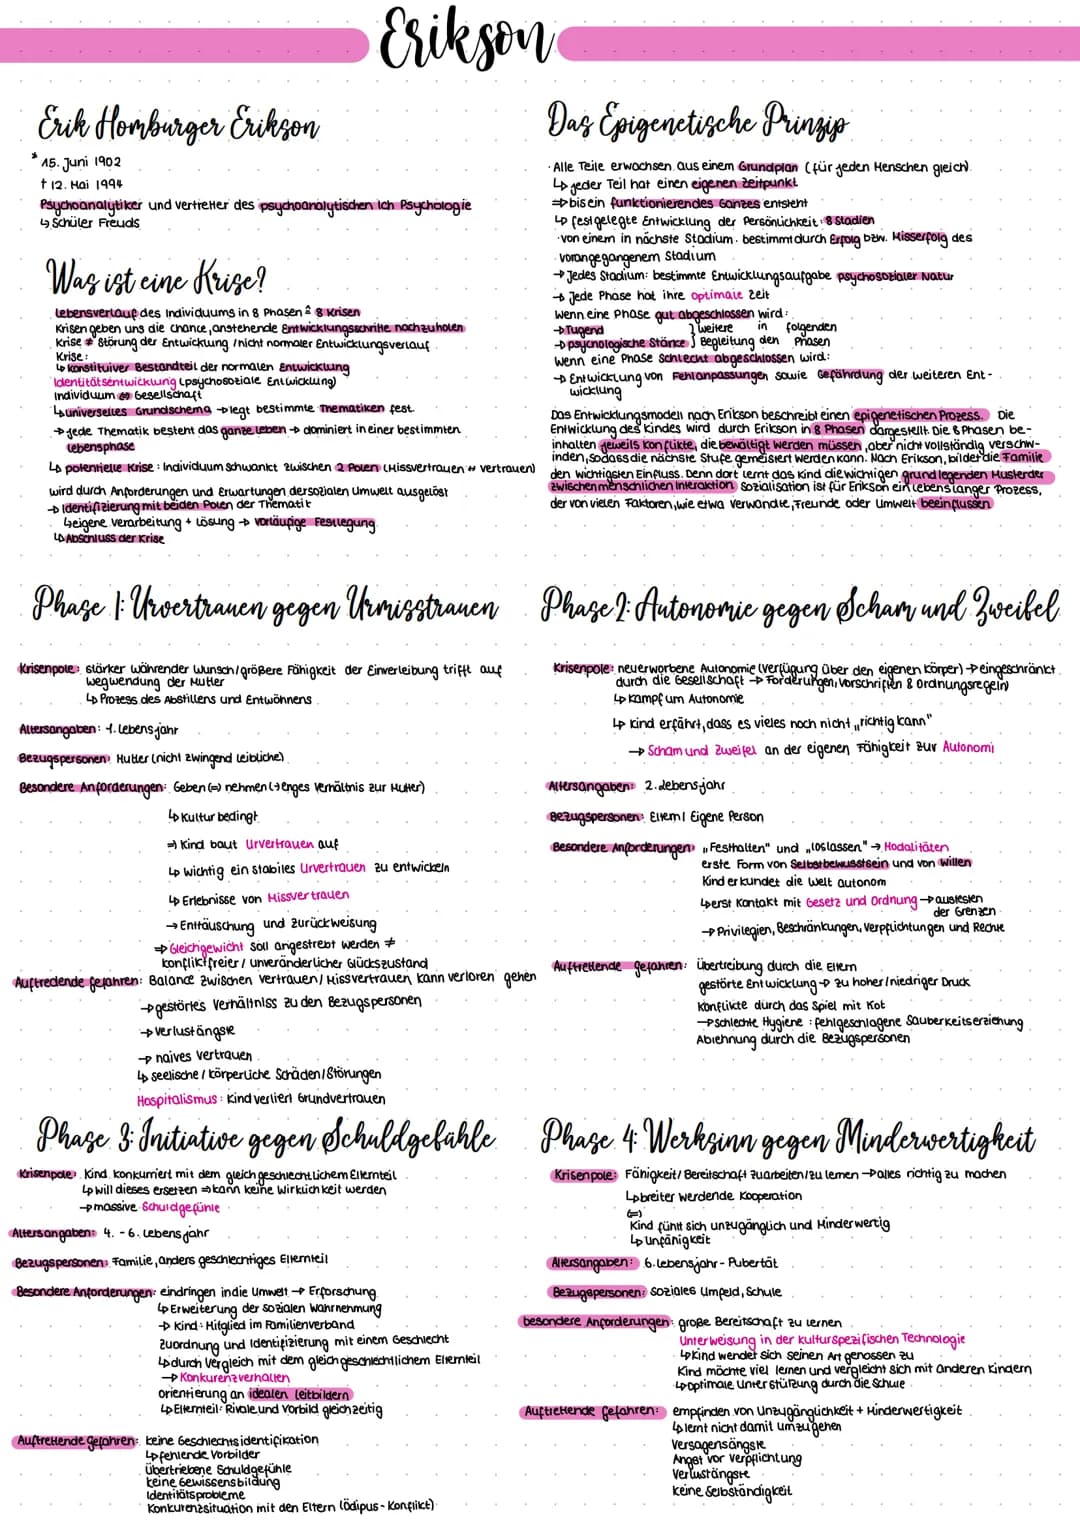 Erikson
Erik Homburger Erikson
* 15. Juni 1902
† 12. Mai 1994
Psychoanalytiker und vertreter des psychoanalytischen Ich Psychologie
↳ Schüler Freuds
Was ist eine Krise?
Lebensverlauf des Individuums in 8 Phasen ≙ 8 Krisen
Krisen geben uns die chance, anstehende Entwicklungsschritte nachzuholen
Krise ≠ Störung der Entwicklung / nicht normaler Entwicklungsverlauf
Krise:
↳ konstituiver Bestandteil der normalen Entwicklung
Identitätsentwicklung (psychosoziale Entwicklung)
Individuum ⇔ Gesellschaft
↳ universelles Grundschema → legt bestimmte Thematiken fest
→ jede Thematik besteht das ganze Leben → dominiert in einer bestimmten
Lebensphase
↳ potentielle Krise: Individuum schwankt zwischen 2 Polen (Missvertrauen ↔ vertrauen)
wird durch Anforderungen und Erwartungen der sozialen Umwelt ausgelöst
→ Identifizierung mit beiden Polen der Thematik
↳ eigene Verarbeitung + Lösung → vorläufige Festlegung
↳ Abschluss der Krise
Das Epigenetische Prinzip
· Alle Teile erwachsen aus einem Grundplan (für jeden Menschen gleich)
↳ jeder Teil hat einen eigenen Zeitpunkt
⇒ bis ein funktionierendes Ganzes entsteht
↳ festgelegte Entwicklung der Persönlichkeit: 8 Stadien
· von einem in nächste Stadium: bestimmt durch Erfolg bzw. Misserfolg des
vorangegangenem Stadium
→ Jedes Stadium: bestimmte Entwicklungsaufgabe psychosozialer Natur
→ Jede Phase hat ihre optimale Zeit
Wenn eine Phase gut abgeschlossen wird:
→ Tugend } weitere in folgenden
→ psychologische Stärke } Begleitung den Phasen
Wenn eine Phase schlecht abgeschlossen wird:
→ Entwicklung von Fehlanpassungen sowie Gefährdung der weiteren Ent-
wicklung
Das Entwicklungsmodell nach Erikson beschreibt einen epigenetischen Prozess. Die
Entwicklung des Kindes wird durch Erikson in 8 Phasen dargestellt. Die 8 Phasen be-
inhalten jeweils Konflikte, die bewältigt werden müssen, aber nicht vollständig verschw-
inden, sodass die nächste Stufe gemeistert werden kann. Nach Erikson, bildet die Familie
den wichtigsten Einfluss. Denn dort lernt das Kind die wichtigen grundlegenden Muster der
zwischenmenschlichen Interaktion. Sozialisation ist für Erikson ein lebenslanger Prozess,
der von vielen Faktoren, wie etwa Verwandte, Freunde oder Umwelt beeinflussen
Phase 1: Urvertrauen gegen Urmisstrauen
Krisenpole: stärker währender Wunsch/größere Fähigkeit der Einverleibung trifft auf
wegwendung der Mutter
↳ Prozess des Abstillens und Entwöhnens
Altersangaben: 1. Lebensjahr
Bezugspersonen: Mutter (nicht zwingend leibliche)
Besondere Anforderungen: Geben (=) nehmen (→ enges Verhältnis zur Mutter)
↳ Kultur bedingt
⇒ Kind baut Urvertrauen auf
↳ wichtig ein stabiles Urvertrauen zu entwickeln
↳ Erlebnisse von Missvertrauen
→ Enttäuschung und Zurückweisung
⇒ Gleichgewicht soll angestrebt werden ≠
konfliktfreier / unveränderlicher Glückszustand
Auftredende Gefahren: Balance zwischen Vertrauen/Missvertrauen kann verloren gehen
→ gestörtes Verhältniss zu den Bezugspersonen
→ Verlustängste
→ naives Vertrauen
↳ seelische / körperliche Schäden/Störungen
Hospitalismus: Kind verliert Grundvertrauen
Phase 2: Autonomie gegen Scham und Zweifel
Krisenpole: neuerworbene Autonomie (Verfügung über den eigenen Körper) → eingeschränkt
durch die Gesellschaft → Forderungen, Vorschriften & Ordnungsregeln)
↳ Kampf um Autonomie
↳ Kind erfährt, dass es vieles noch nicht „richtig kann"
→ Scham und Zweifel an der eigenen Fähigkeit zur Autonomi
Altersangaben: 2. Lebensjahr
Bezugspersonen: Eltern / Eigene Person
Besondere Anforderungen: „Festhalten" und „loslassen" → Modalitäten
erste Form von Selbstbewusstsein und von Willen
Kind erkundet die Welt autonom
↳ erst Kontakt mit Gesetz und Ordnung → austesten
der Grenzen
→ Privilegien, Beschränkungen, Verpflichtungen und Rechte
Auftretende Gefahren: Übertreibung durch die Eltern
gestörte Entwicklung → zu hoher/niedriger Druck
Konflikte durch das Spiel mit Kot
→ schlechte Hygiene: fehlgeschlagene Sauberkeitserziehung
Ablehnung durch die Bezugspersonen
Phase 3: Initiative gegen Schuldgefühle
Krisenpole: Kind konkurriert mit dem gleichgeschlechtlichem Elternteil
↳ will dieses ersetzen ⇒ kann keine Wirklichkeit werden
→ massive Schuldgefühle
Altersangaben: 4. - 6. Lebensjahr
Bezugspersonen: Familie, anders geschlechtiges Elternteil
Besondere Anforderungen: eindringen in die Umwelt → Erforschung
↳ Erweiterung der sozialen Wahrnehmung
→ Kind: Mitglied im Familienverband
Zuordnung und Identifizierung mit einem Geschlecht
↳ durch Vergleich mit dem gleichgeschlechtlichem Elternteil
→ Konkurenzverhalten
orientierung an idealen Leitbildern
↳ Elternteil: Rivale und Vorbild gleichzeitig
Auftretende Gefahren: keine Geschlechtsidentifikation
↳ fehlende Vorbilder
übertriebene Schuldgefühle
keine Gewissensbildung
Identitätsprobleme
Konkurenzsituation mit den Eltern (ödipus-Konflikt)
Phase 4: Werksinn gegen Minderwertigkeit
Krisenpole: Fähigkeit/Bereitschaft zu arbeiten/zu lernen → alles richtig zu machen
↳ breiter werdende Kooperation
(=)
Kind fühlt sich unzugänglich und Minderwertig
↳ Unfähigkeit
Altersangaben: 6. Lebensjahr - Pubertät
Bezugspersonen: Soziales Umfeld, Schule
besondere Anforderungen: große Bereitschaft zu lernen
Unterweisung in der kulturspezifischen Technologie
↳ Kind wendet sich seinen Artgenossen zu
Kind möchte viel lernen und vergleicht sich mit anderen Kindern
↳ optimale Unterstützung durch die Schule
Auftretende Gefahren: empfinden von Unzugänglichkeit + Minderwertigkeit
↳ lernt nicht damit umzugehen
Versagensängste
Angst vor Verpflichtung
Verlustängste
keine Selbständigkeit